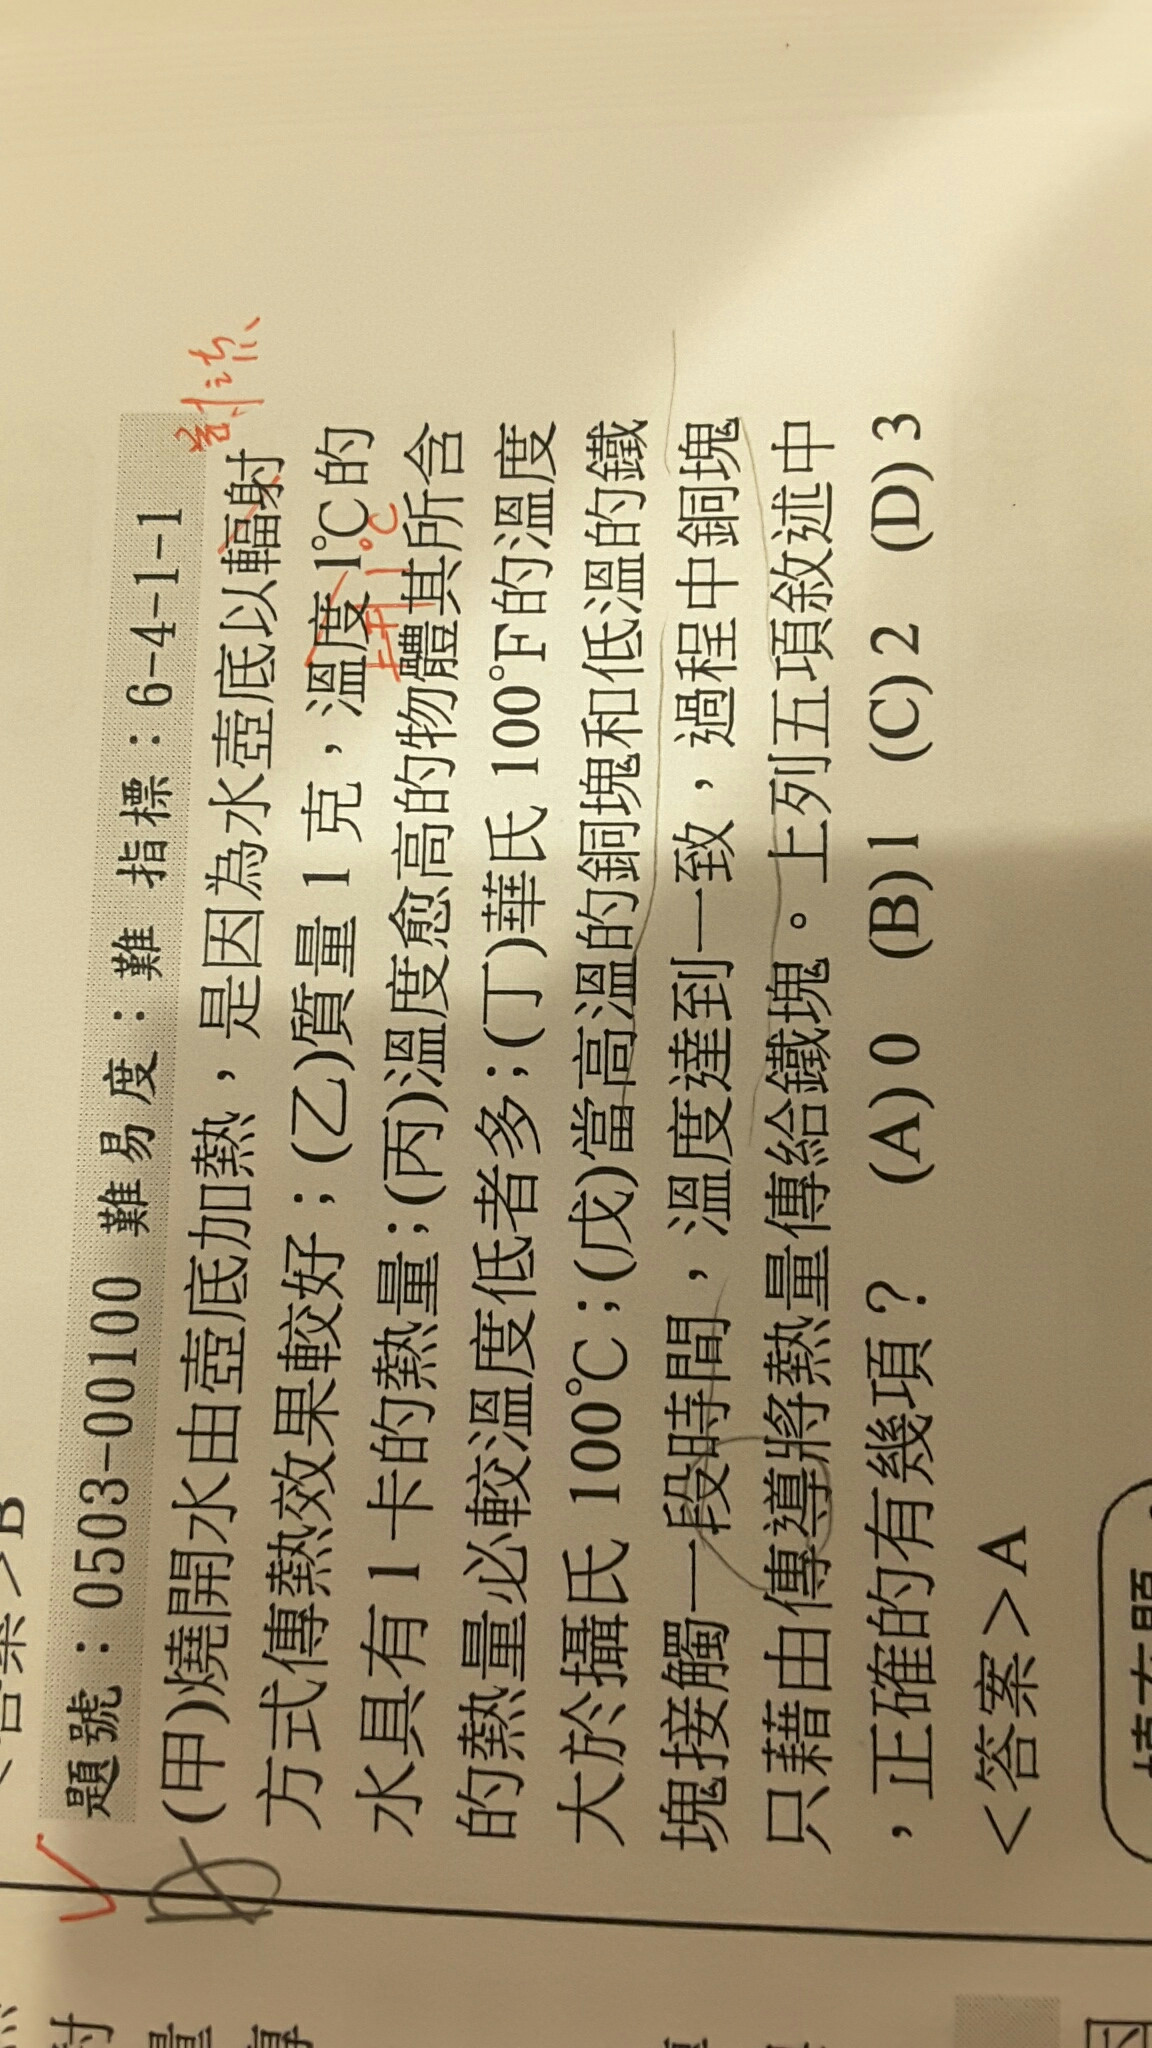 <答案>B
題號：0503-00100 難易度：難 指標：6-4-1-1
(甲)燒開水由壺底加熱，是因為水壺底以輻射
對流
方式傳熱效果較好；(乙)質量 1 克，溫度 1℃的
上升1℃
水具有 1 卡的熱量；(丙)溫度愈高的物體其所含
的熱量必較溫度低者多；(丁)華氏 100℉的溫度
大於攝氏 100℃；(戊)當高溫的銅塊和低溫的鐵
塊接觸一段時間，溫度達到一致，過程中銅塊
只藉由傳導將熱量傳給鐵塊。上列五項敘述中
，正確的有幾項？ (A) 0 (B) 1 (C) 2 (D) 3
<答案>A